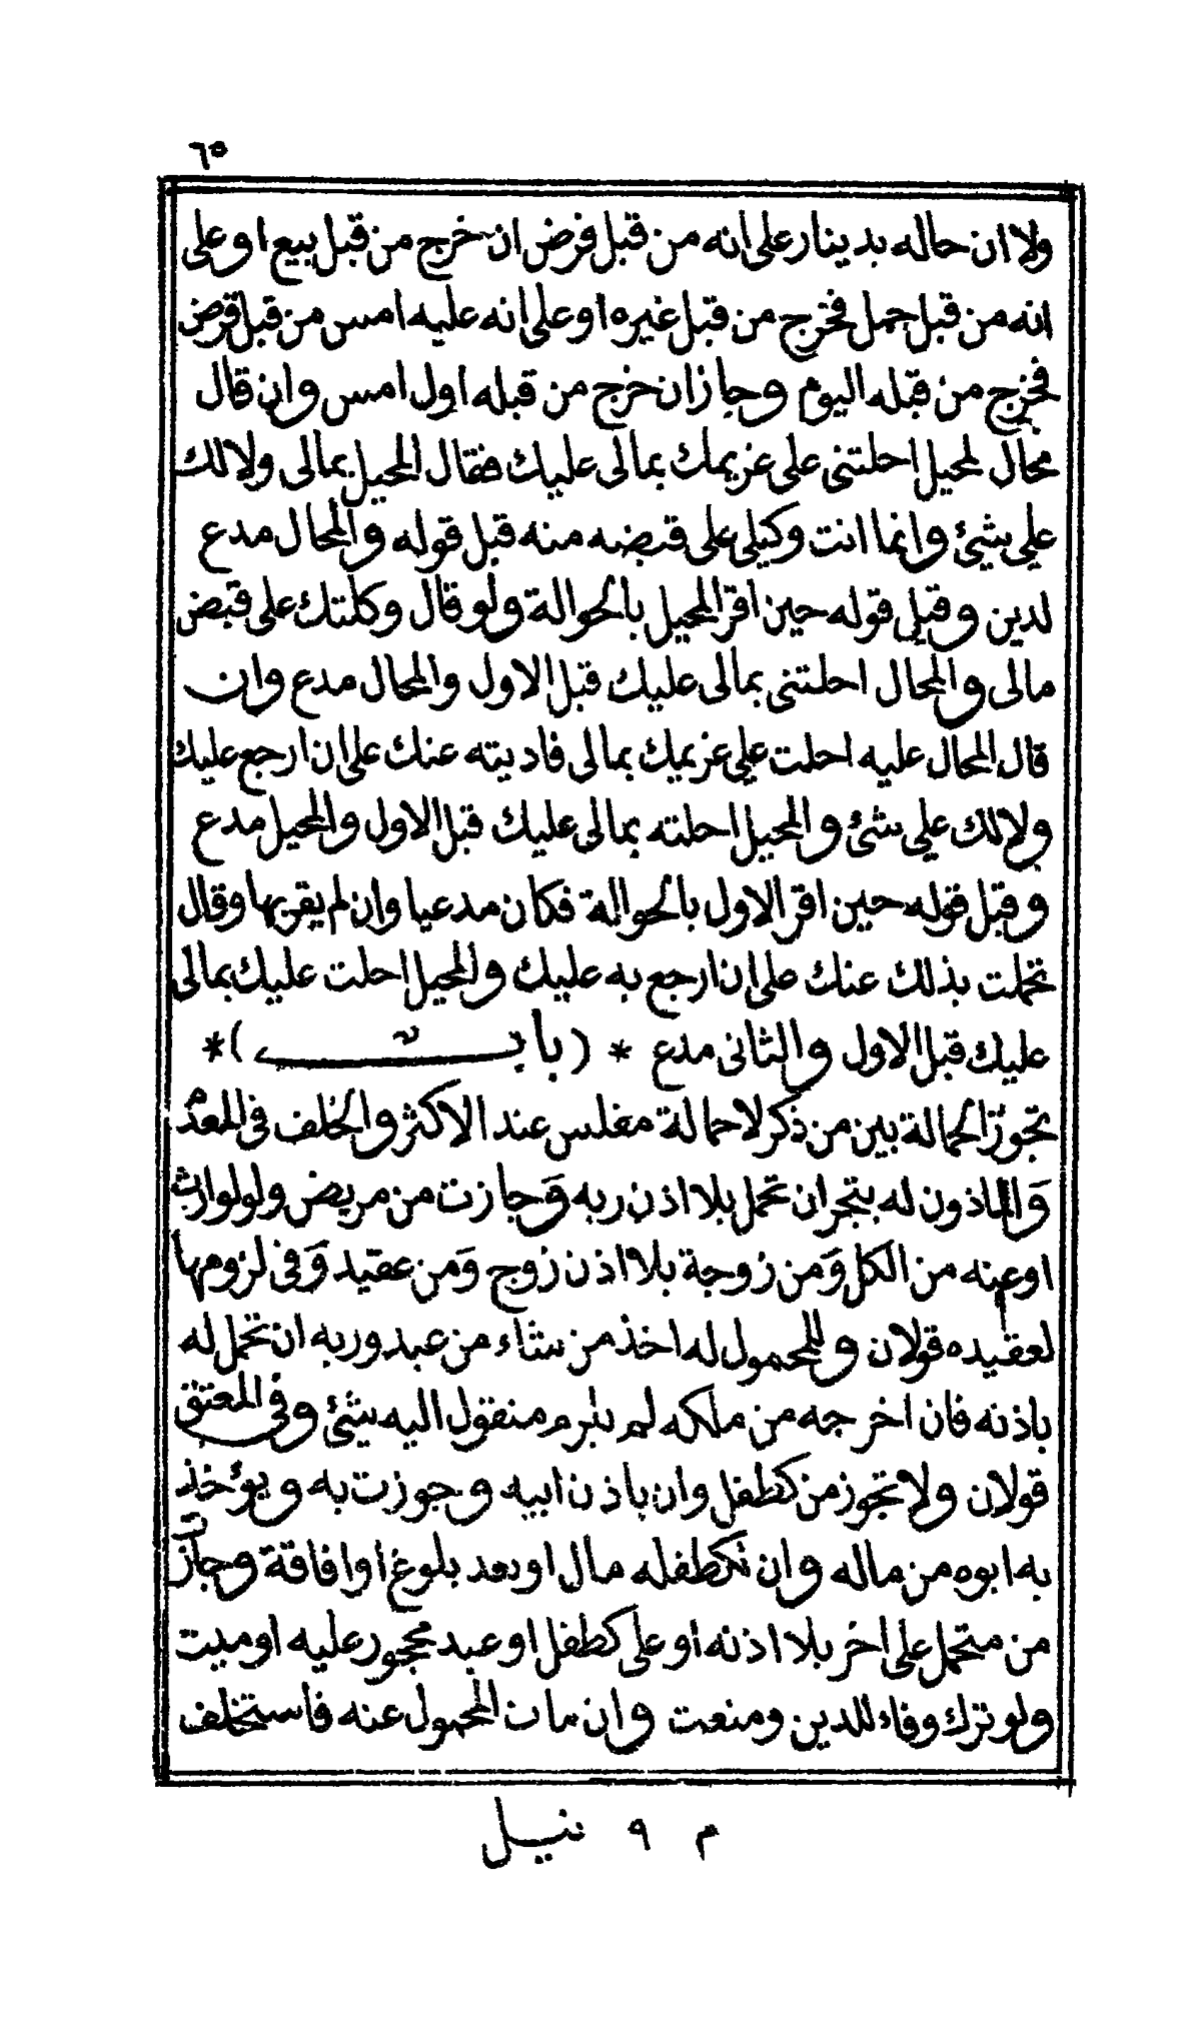 ٦٥
ولا ان حاله بدينار على انه من قبل قرض ان خرج من قبل بيع او على
انه من قبل حمل فخرج من قبل غيره او على انه عليه امس من قبل قرض
فخرج من قبله اليوم وجاز ان خرج من قبله اول امس وان قال
محال لمحيل احلتنى على غريمك بمالى عليك فقال المحيل بمالى ولا لك
على شئ وانما انت وكيلى على قبضه منه قبل قوله والمحال مدع
لدين وقبل قوله حين اقر المحيل بالحوالة ولو قال وكلتك على قبض
مالى والمحال احلتنى بمالى عليك قبل الاول والمحال مدع وان
قال المحال عليه احلت على غريمك بمالى فاديته عنك على ان ارجع عليك
ولا لك على شئ والمحيل احلته بمالى عليك قبل الاول والمحيل مدع
وقبل قوله حين اقر الاول بالحوالة فكان مدعيا وان لم يقر بها وقال
تحملت بذلك عنك على ان ارجع به عليك والمحيل احلت عليك بمالى
عليك قبل الاول والثانى مدع * (باب) *
تجوز الحمالة بين من ذكر لا حمالة مفلس عند الاكثر والخلف فى المعدم
وَالماذون له بتجر ان تحمل بلا اذن ربه وَجازت من مريض ولو لوارث
او عنه من الكل وَمن زوجة بلا اذن زوج وَمن عقيد وَفى لزومها
لعقيده قولان وللمحمول له اخذ من شاء من عبد وربه ان تحمل له
باذنه فان اخرجه من ملكه لم يلزم منقول اليه شئ وفى المعتق
قولان ولا تجوز من كطفل وان باذن ابيه وجوزت به ويؤخذ
به ابوه من ماله وان لكطفله مال او بعد بلوغ او افاقة وجاز
من متحمل على اخر بلا اذنه او على كطفل او عبد محجور عليه او ميت
ولو ترك وفاء للدين ومنعت وان مات المحمول عنه فاستخلف
م ٩ نيل